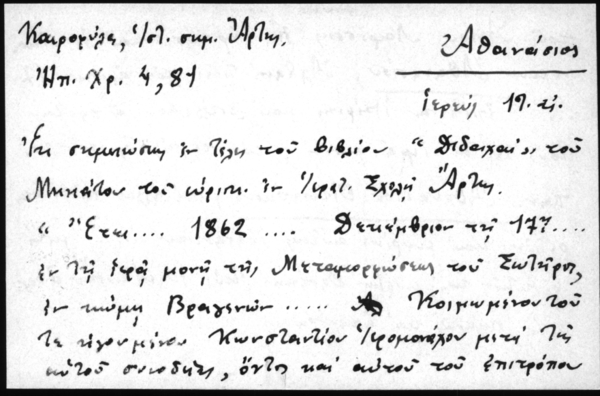 Καιροφύλα, Ἱστ. σημ. Ἄρτης.
Ἠπ. Χρ. 4, 81
Ἀθανάσιος
ἱερεύς 19. αἰ.
Ἐκ σημειώσεως ἐν τέλει τοῦ βιβλίου "Διδαχαί" τοῦ
Μηνιάτου τοῦ εὑρισκ. ἐν Ἱερατ. Σχολῇ Ἄρτης.
" Ἔτει.... 1862 .... Δεκεμβρίου τῇ 17η ....
ἐν τῇ ἱερᾷ μονῇ τῆς Μεταμορφώσεως τοῦ Σωτῆρος,
ἐν κώμῃ Βραγενῶν ..... Κοιμωμένου τοῦ
τε ἡγουμένου Κωνσταντίου Ἱερομονάχου μετά τῆς
αὐτοῦ συνοδίας, ὄντος καί αὐτοῦ τοῦ ἐπιτρόπου